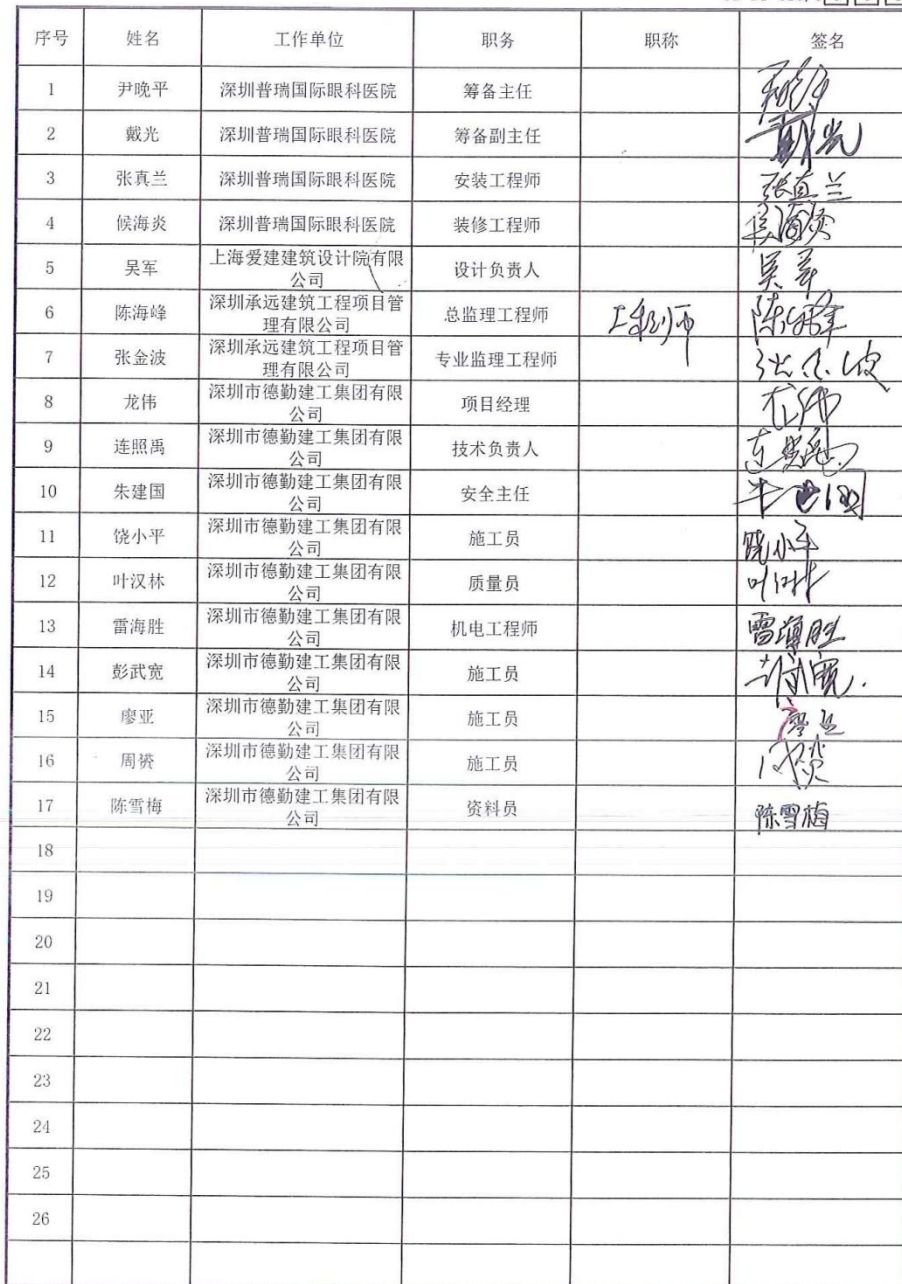 序号 姓名 工作单位 职务 职称 签名
1 尹晚平 深圳普瑞国际眼科医院 筹备主任
2 戴光 深圳普瑞国际眼科医院 筹备副主任 戴光
3 张真兰 深圳普瑞国际眼科医院 安装工程师 张真兰
4 候海炎 深圳普瑞国际眼科医院 装修工程师
5 吴军 上海爱建建筑设计院有限公司 设计负责人 吴军
6 陈海峰 深圳承远建筑工程项目管理有限公司 总监理工程师 工程师 陈海峰
7 张金波 深圳承远建筑工程项目管理有限公司 专业监理工程师 张金波
8 龙伟 深圳市德勤建工集团有限公司 项目经理 龙伟
9 连照禹 深圳市德勤建工集团有限公司 技术负责人
10 朱建国 深圳市德勤建工集团有限公司 安全主任
11 饶小平 深圳市德勤建工集团有限公司 施工员 饶小平
12 叶汉林 深圳市德勤建工集团有限公司 质量员 叶汉林
13 雷海胜 深圳市德勤建工集团有限公司 机电工程师 雷海胜
14 彭武宽 深圳市德勤建工集团有限公司 施工员
15 廖亚 深圳市德勤建工集团有限公司 施工员
16 周赟 深圳市德勤建工集团有限公司 施工员
17 陈雪梅 深圳市德勤建工集团有限公司 资料员 陈雪梅
18
19
20
21
22
23
24
25
26